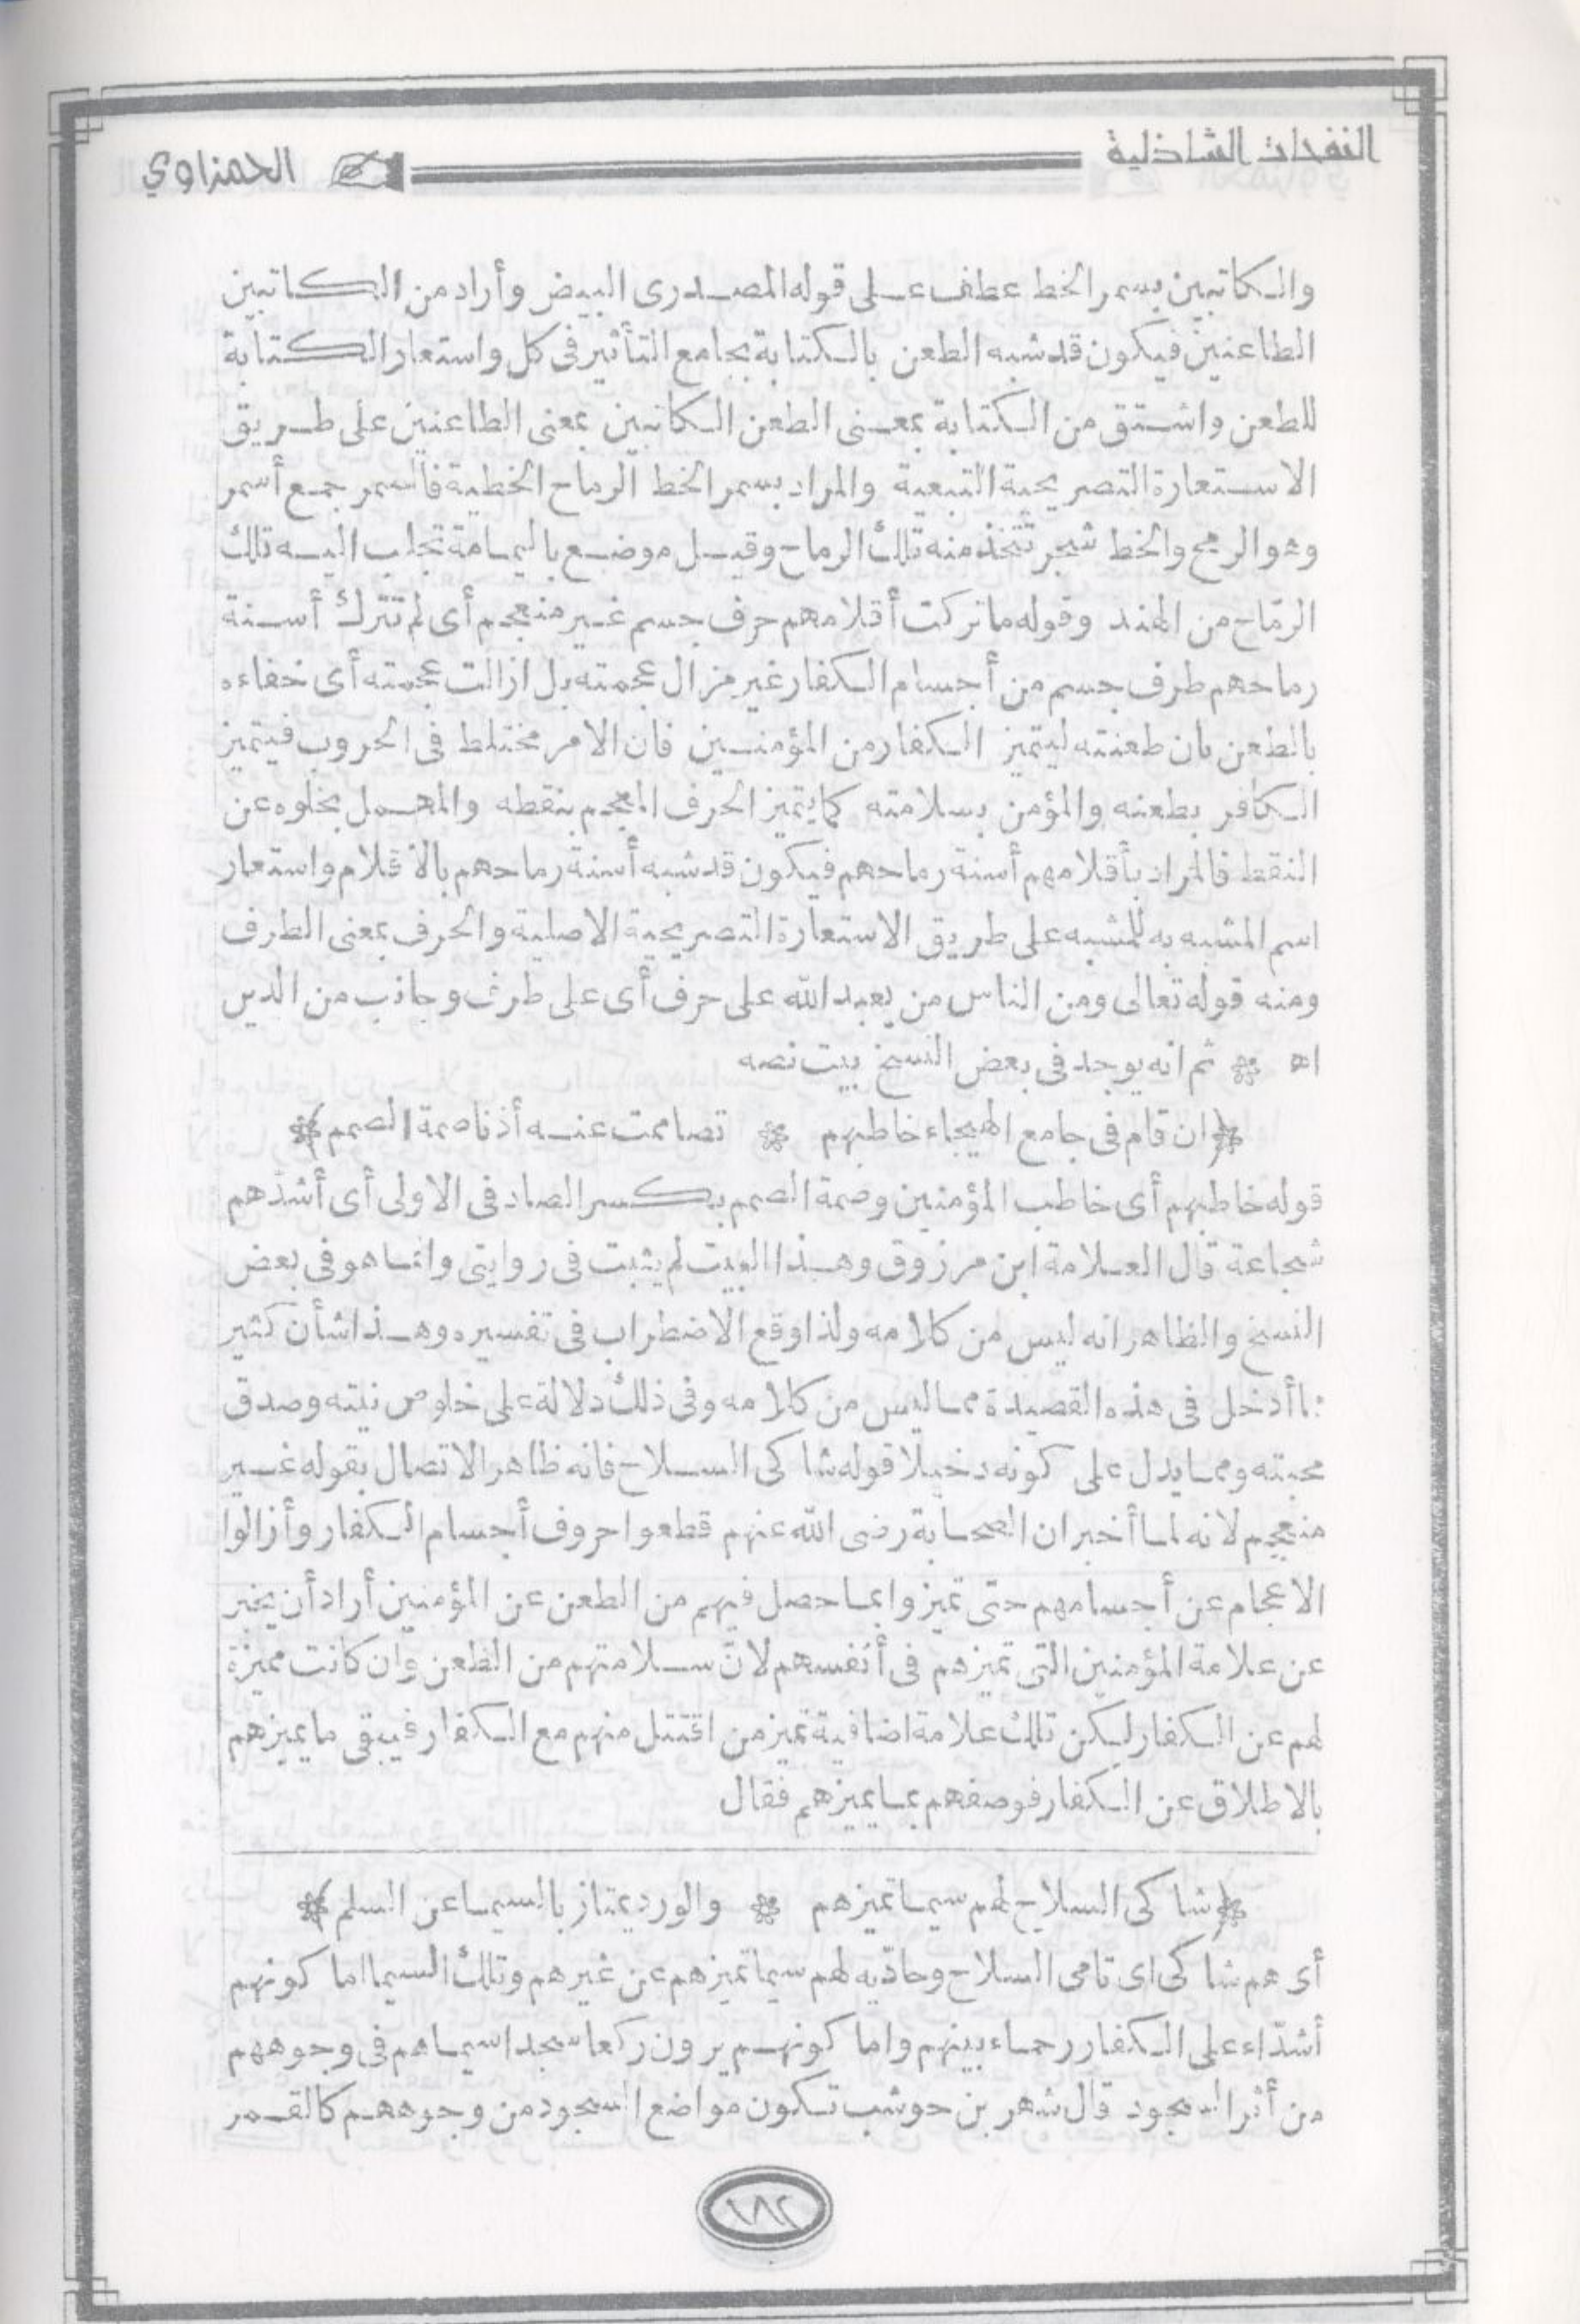 النفحات الشاذلية
الحمزاوي
والكاتبين بسمر الخط عطف على قوله المصدرى البيض وأراد من الكاتبين
الطاعنين فيكون قد شبه الطعن بالكتابة بجامع التأثير فى كل واستعار الكتابة
للطعن واشتق من الكتابة بمعنى الطعن الكاتبين بمعنى الطاعنين على طريق
الاستعارة التصريحية التبعية والمراد بسمر الخط الرماح الخطية فالسمر جمع أسمر
وهو الرمح والخط شجر تتخذ منه تلك الرماح وقيل موضع باليمامة تجلب اليه تلك
الرماح من الهند وقوله ماتركت أقلامهم حرف جسم غير منعجم أى لم تترك أسنة
رماحهم طرف جسم من أجسام الكفار غير مزال عجمته بل ازالت عجمته أى خفاءه
بالطعن بان طعنته ليتميز الكفار من المؤمنين فان الامر مختلط فى الحروب فيتميز
الكافر بطعنه والمؤمن بسلامته كما يتميز الحرف المعجم بنقطه والمهمل بخلوه عن
النقط فالمراد بأقلامهم أسنة رماحهم فيكون قد شبه أسنة رماحهم بالأقلام واستعار
اسم المشبه به للمشبه على طريق الاستعارة التصريحية الاصلية والحرف بمعنى الطرف
ومنه قوله تعالى ومن الناس من يعبد الله على حرف أى على طرف وجانب من الدين
اه * ثم انه يوجد فى بعض النسخ بيت نصه
*(ان قام فى جامع الهيجاء خاطبهم * تصاممت عنه أذنا صمة الصمم)*
قوله خاطبهم أى خاطب المؤمنين وصمة الصمم بكسر الصاد فى الاولى أى أشدهم
شجاعة قال العلامة ابن مرزوق وهذا البيت لم يثبت فى روايتى وانما هو فى بعض
النسخ والظاهر انه ليس من كلامه ولذا وقع الاضطراب فى تفسيره وهذا شأن كثير
مما أدخل فى هذه القصيدة مما ليس من كلامه وفى ذلك دلالة على خلوص نيته وصدق
محبته ومما يدل على كونه دخيلا قوله شاكى السلاح فانه ظاهر الاتصال بقوله غير
منعجم لانه لما أخبر ان الصحابة رضى الله عنهم قطعوا حروف أجسام الكفار وأزالوا
الاعجام عن أجسامهم حتى تميزوا بما حصل فيهم من الطعن عن المؤمنين أراد أن يخبر
عن علامة المؤمنين التى تميزهم فى أنفسهم لانّ سلامتهم من الطعن وان كانت مميزة
لهم عن الكفار لكن تلك علامة اضافية تميز من اقتتل منهم مع الكفار فيبقى ما يميزهم
بالاطلاق عن الكفار فوصفهم بما يميزهم فقال
*(شاكى السلاح لهم سيما تميزهم * والورد يمتاز بالسيما عن السلم)*
أى هم شاكى اى تامى السلاح وحاديه لهم سيما تميزهم عن غيرهم وتلك السيما اما كونهم
أشدّاء على الكفار رحماء بينهم واما كونهم يرون ركعا سجدا سيماهم فى وجوههم
من أثر السجود قال شهر بن حوشب تكون مواضع السجود من وجوههم كالقمر
١٨٢